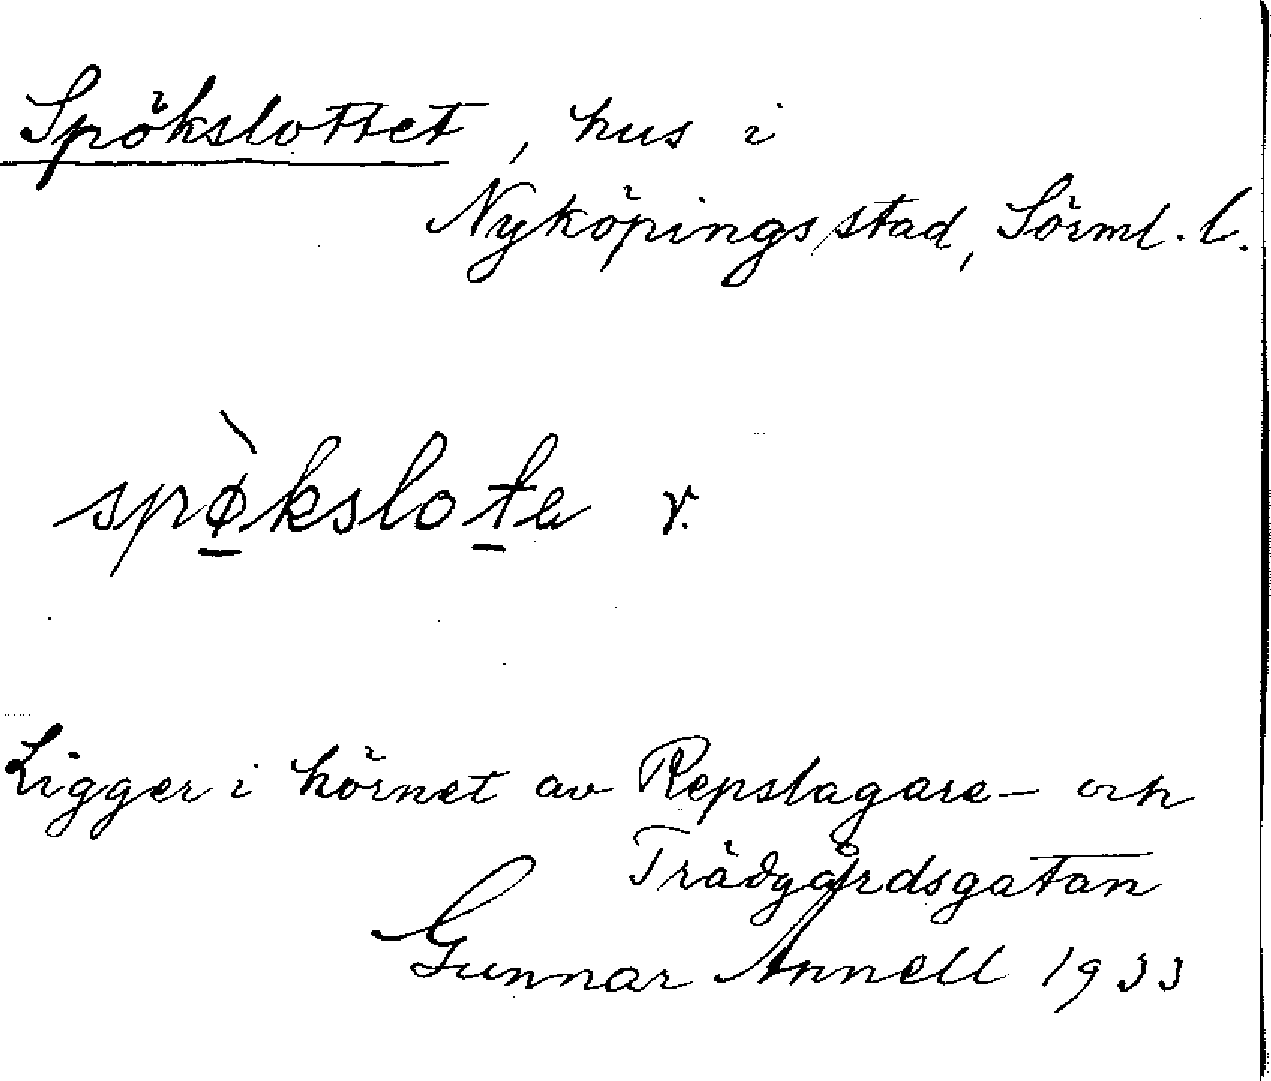 Spökslottet, hus i
Nyköpings stad, Sörml. l.
spø̀kslotɐ v.
Ligger i hörnet av Repslagare- och
Trädgårdsgatan
Gunnar Annell 1933